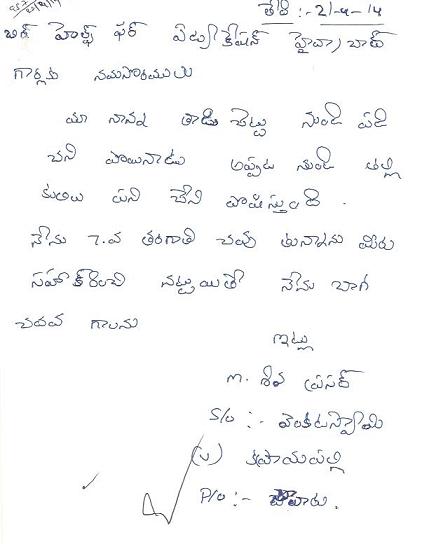 తేది :- 21-4-14
హెల్ప్ ఫర్ ఏడ్యుకేషన్ హైద్రాబాద్
గార్లకు నమస్కారములు
మా నాన్న తాడి చెట్టు నుండి పడి
చని పొయినాడు అప్పటి నుండి తల్లి
కులలు పని చేసి పొషిస్తుంది.
నేను 7.వ తరగతి చదువు తున్నాను మీరు
సహకరించి నట్టుయితే నేను బాగ
చదవ గాలను
ఇట్లు
m. శివ ప్రసాద్
S/o :- వెంకటస్వామి
(v) కపాయపల్లి
P/o :-